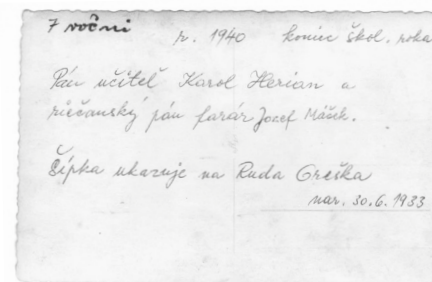 7 roční r. 1940 koniec škol. roka
Pán učiteľ Karol Herian a
ričanský pán farár Jozef Máčik.
Šípka ukazuje na Ruda Greška
nar. 30.6.1933